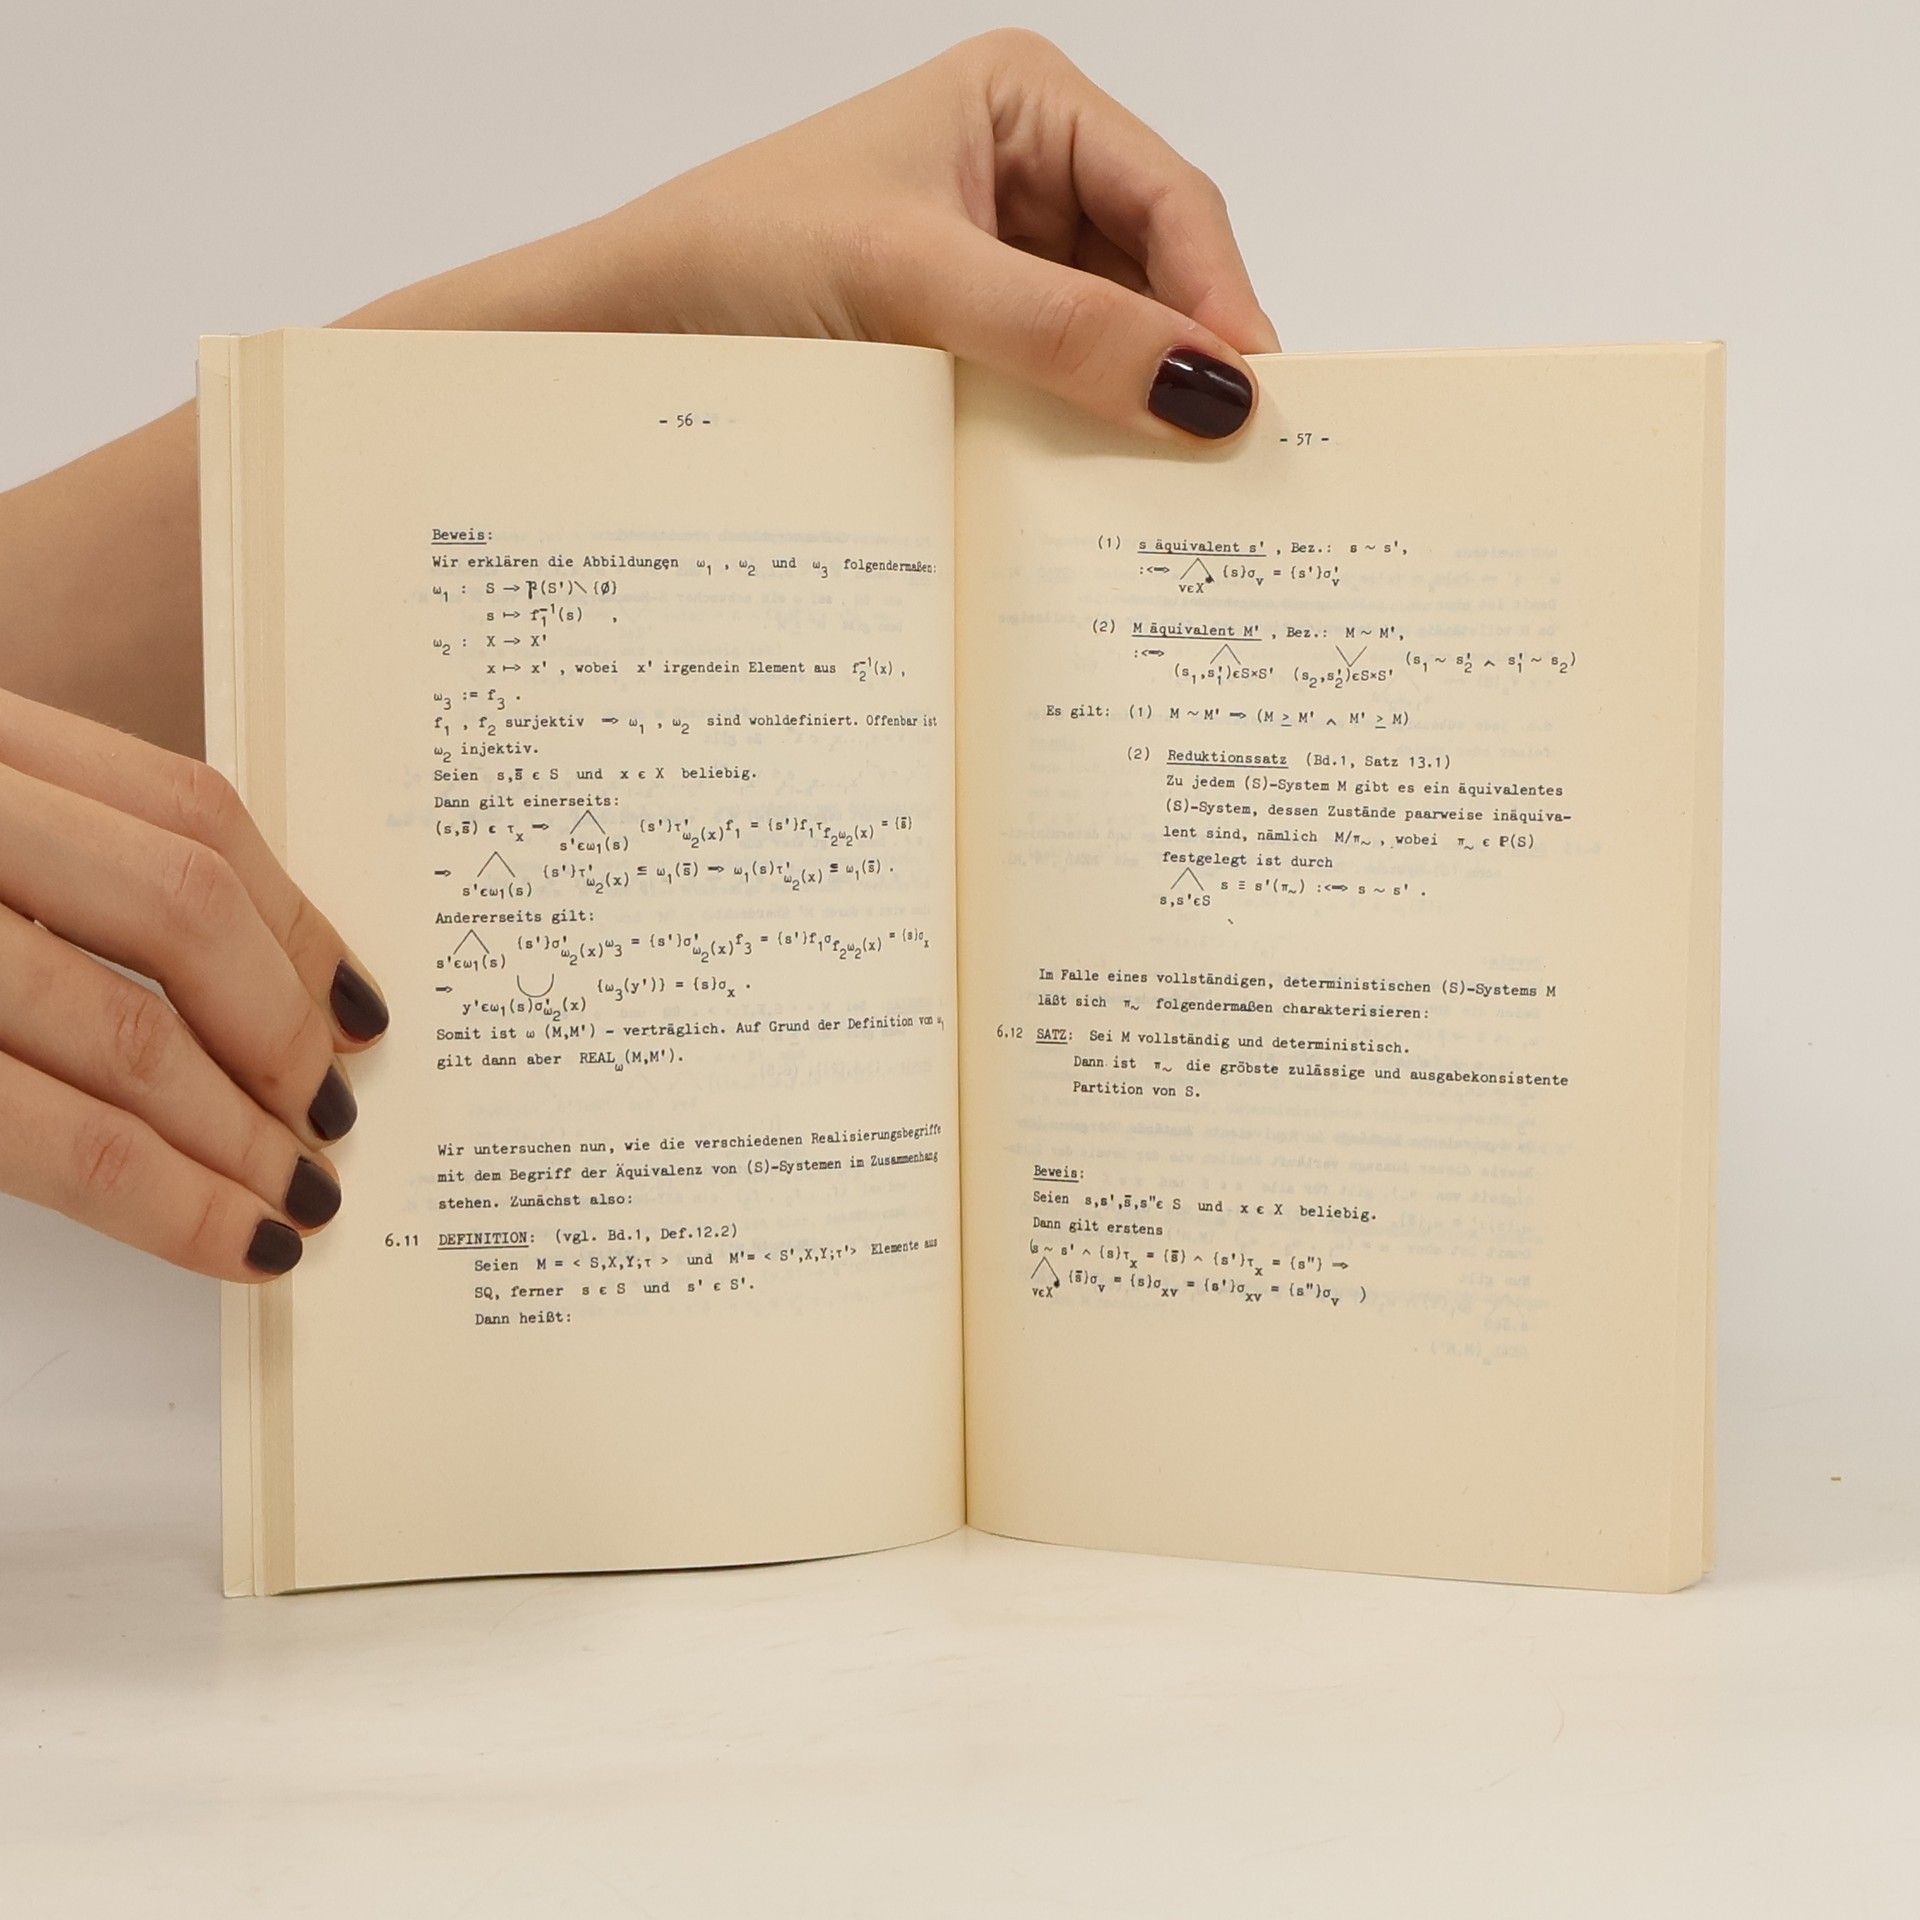 - 56 -
Beweis:
Wir erklären die Abbildungen ω₁ , ω₂ und ω₃ folgendermaßen:
ω₁ : S → P(S')\{Ø}
s ↦ f₁⁻¹(s) ,
ω₂ : X → X'
x ↦ x' , wobei x' irgendein Element aus f₂⁻¹(x) ,
ω₃ := f₃ .
f₁ , f₂ surjektiv ⟹ ω₁ , ω₂ sind wohldefiniert. Offenbar ist
ω₂ injektiv.
Seien s,s̄ ϵ S und x ϵ X beliebig.
Dann gilt einerseits:
(s,s̄) ϵ τ_x ⟹ ⋀_{s'ϵω₁(s)} {s'}τ'_{ω₂(x)}f₁ = {s'}f₁τ_{f₂ω₂(x)} = {s̄}
⟹ ⋀_{s'ϵω₁(s)} {s'}τ'_{ω₂(x)} ⊆ ω₁(s̄) ⟹ ω₁(s)τ'_{ω₂(x)} ⊆ ω₁(s̄) .
Andererseits gilt:
⋀_{s'ϵω₁(s)} {s'}σ'_{ω₂(x)}ω₃ = {s'}σ'_{ω₂(x)}f₃ = {s'}f₁σ_{f₂ω₂(x)} = {s}σ_x
⟹ ⋃_{y'ϵω₁(s)σ'_{ω₂(x)}} {ω₃(y')} = {s}σ_x .
Somit ist ω (M,M') - verträglich. Auf Grund der Definition von ω₁
gilt dann aber REAL_ω(M,M').
Wir untersuchen nun, wie die verschiedenen Realisierungsbegriffe
mit dem Begriff der Äquivalenz von (S)-Systemen im Zusammenhang
stehen. Zunächst also:
6.11 DEFINITION: (vgl. Bd.1, Def.12.2)
Seien M = < S,X,Y;τ > und M'= < S',X,Y;τ'> Elemente aus
SQ, ferner s ϵ S und s' ϵ S'.
Dann heißt:
- 57 -
(1) s äquivalent s' , Bez.: s ~ s',
:<=> ⋀_{vϵX*} {s}σ_v = {s'}σ'_v
(2) M äquivalent M' , Bez.: M ~ M',
:<=> ⋀_{(s₁,s₁')ϵS×S'} ⋁_{(s₂,s₂')ϵS×S'} (s₁ ~ s₂' ∧ s₁' ~ s₂)
Es gilt: (1) M ~ M' ⟹ (M ≥ M' ∧ M' ≥ M)
(2) Reduktionssatz (Bd.1, Satz 13.1)
Zu jedem (S)-System M gibt es ein äquivalentes
(S)-System, dessen Zustände paarweise inäquiva-
lent sind, nämlich M/π_~ , wobei π_~ ϵ P(S)
festgelegt ist durch
⋀_{s,s'ϵS} s ≡ s'(π_~) :<=> s ~ s' .
Im Falle eines vollständigen, deterministischen (S)-Systems M
läßt sich π_~ folgendermaßen charakterisieren:
6.12 SATZ: Sei M vollständig und deterministisch.
Dann ist π_~ die gröbste zulässige und ausgabekonsistente
Partition von S.
Beweis:
Seien s,s',s̄,s"ϵ S und x ϵ X beliebig.
Dann gilt erstens
(s ~ s' ∧ {s}τ_x = {s̄} ∧ {s'}τ_x = {s"} ⟹
⋀_{vϵX*} {s̄}σ_v = {s}σ_xv = {s'}σ_xv = {s"}σ_v )